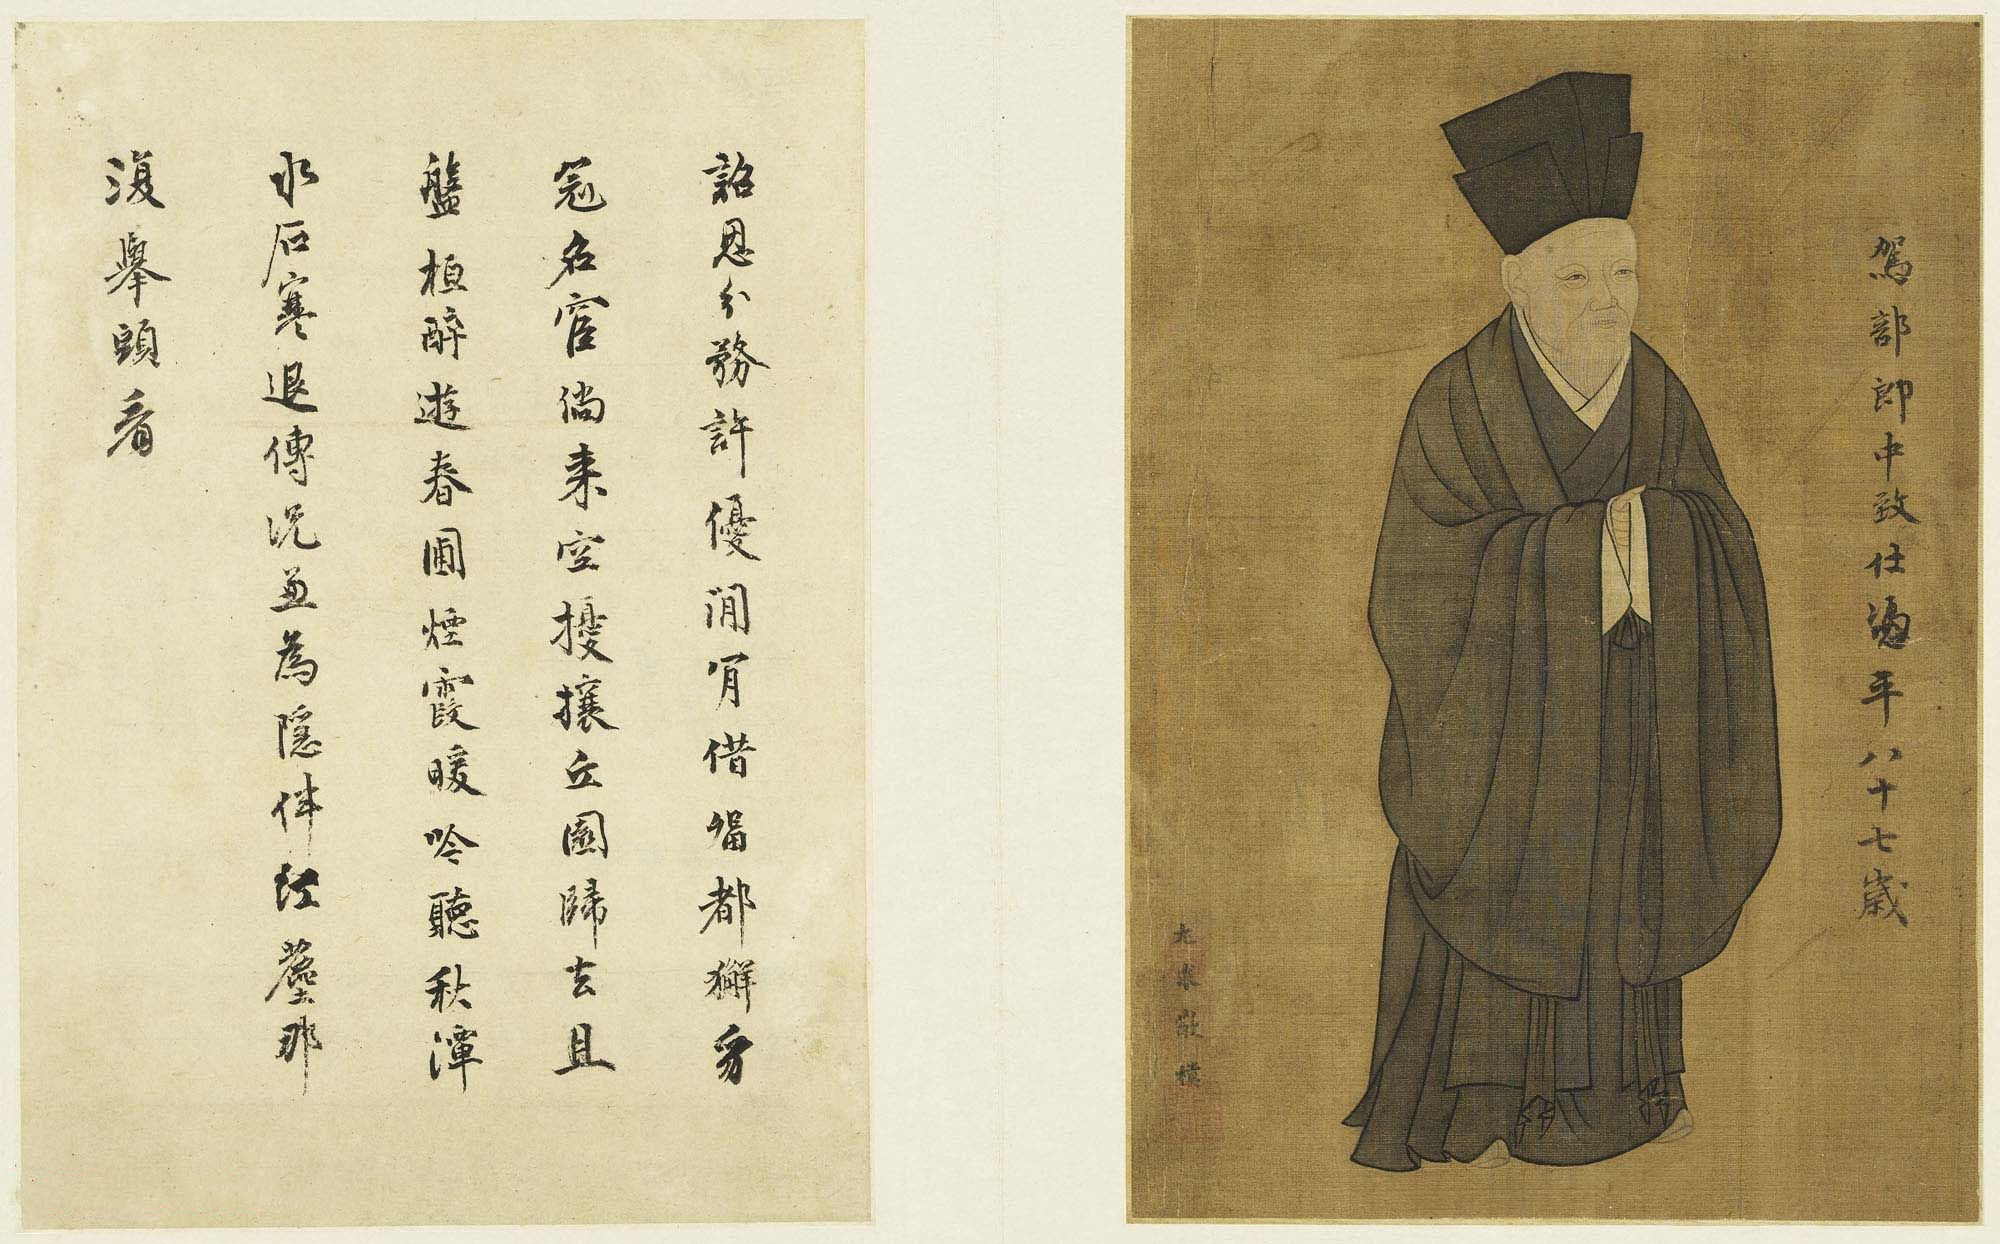 駕部郎中致仕馮平八十七歲
尤求敬模
詔恩分務許優閒肎借留都獬豸
冠名宦倘来空擾攘丘園歸去且
盤桓醉遊春圃煙霞暖吟聽秋潭
水石寒退傅况兼為隱伴紅塵那
復舉頭看